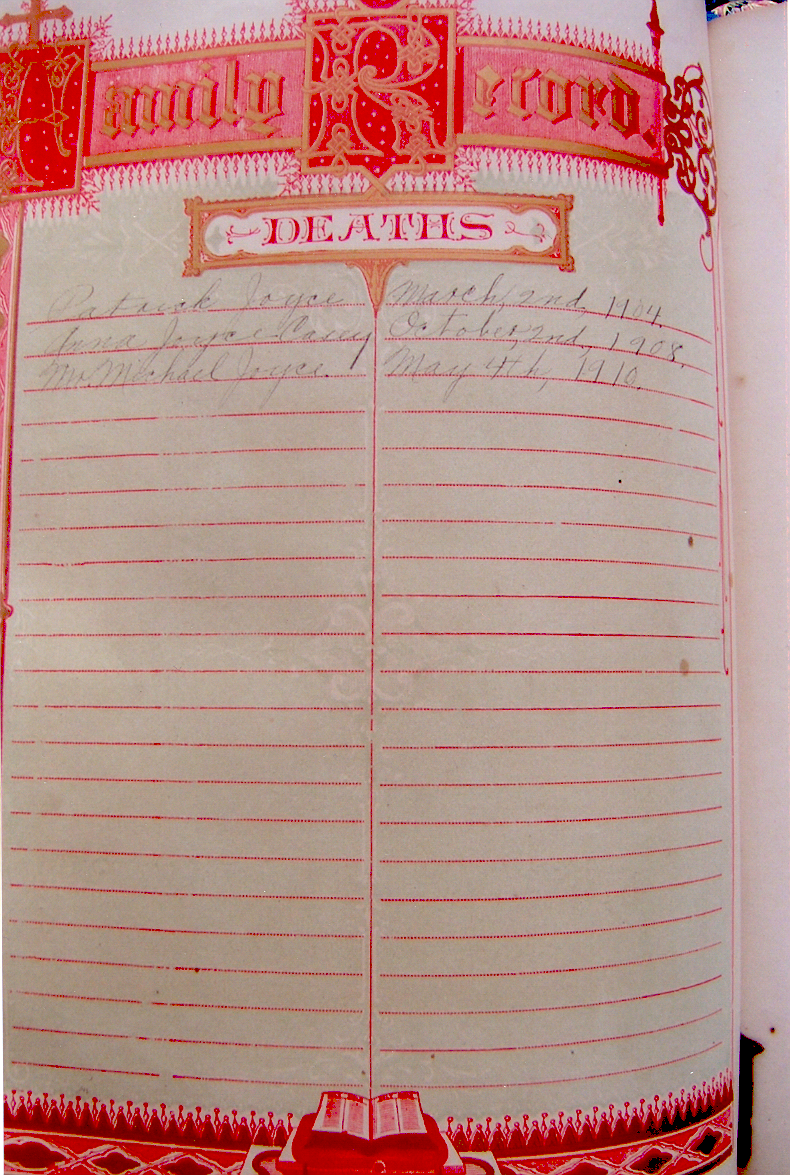 Family Record.
DEATHS
Patrick Joyce March, 2nd, 1904.
Anna Joyce Casey October, 2nd, 1908.
Mr. Michael Joyce. May 4th, 1910.